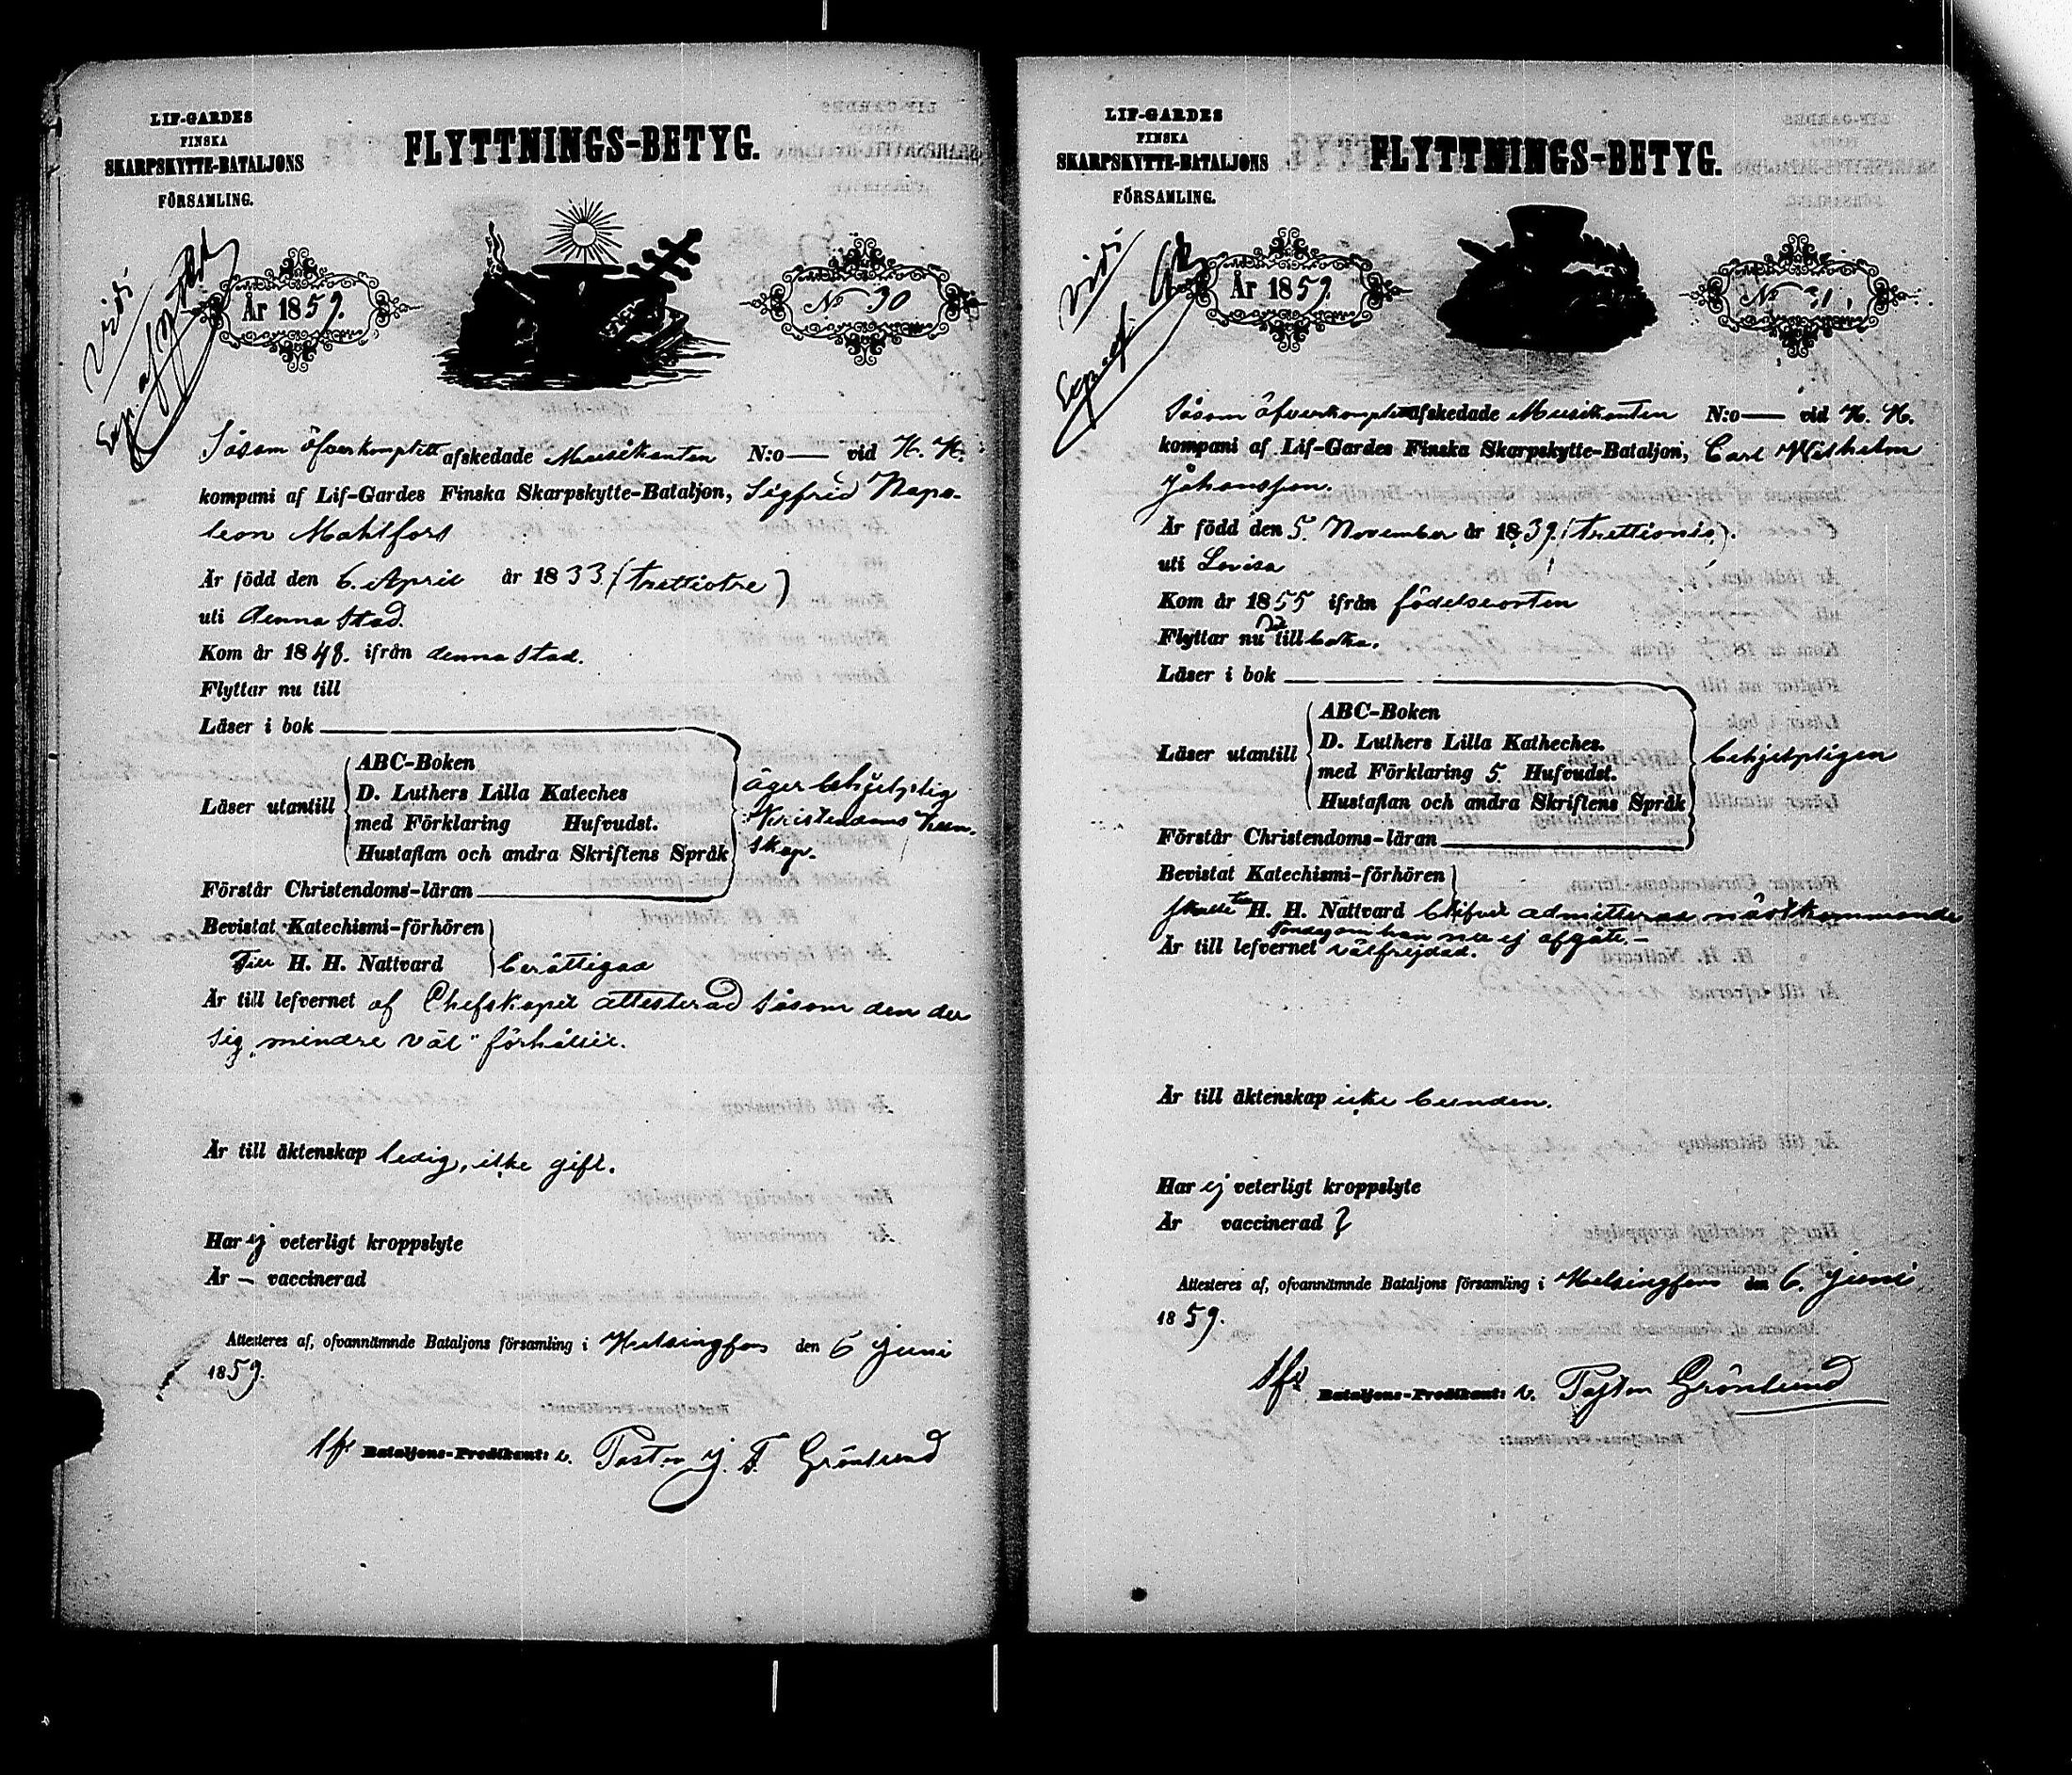 LIF-GARDES
FINSKA
SKARPSKYTTE-BATALJONS
FÖRSAMLING.
FLYTTNINGS-BETYG.
År 1859.
No 30
Vidi
Såsom öfverkomplett afskedade Musikanten N:o — vid H. K.
kompani af Lif-Gardes Finska Skarpskytte-Bataljon, Sigfrid Napo-
leon Mahlfors
Är född den 6. April år 1833. (trettiotre)
uti denna stad.
Kom år 1848. ifrån denna stad.
Flyttar nu till
Läser i bok
Läser utantill
ABC-Boken
D. Luthers Lilla Kateches
med Förklaring Hufvudst.
Hustaflan och andra Skriftens Språk
äger behjelplig
Kristendoms kun-
skap.
Förstår Christendoms-läran
Bevistat Katechismi-förhören
Till H. H. Nattvard berättigad
Är till lefvernet af Chefskapet attesterad såsom den der
sig „mindre väl" förhållit.
Är till äktenskap ledig, icke gift.
Har ej veterligt kroppslyte
Är — vaccinerad
Attesteres af, ofvannämnde Bataljons församling i Helsingfors den 6 Juni
1859.
Bataljons-Predikant: v. Pastor J. F. Grönlund
LIF-GARDES
FINSKA
SKARPSKYTTE-BATALJONS
FÖRSAMLING.
FLYTTNINGS-BETYG.
År 1859.
No 31.
Vidi
Såsom öfverkomplett afskedade Musikanten N:o — vid H. K.
kompani af Lif-Gardes Finska Skarpskytte-Bataljon, Carl Wilhelm
Johansson.
Är född den 5. November år 1839. (trettionio).
uti Lovisa
Kom år 1855 ifrån födelseorten
Flyttar nu dit tillbaka.
Läser i bok
Läser utantill
ABC-Boken
D. Luthers Lilla Katheches.
med Förklaring 5. Hufvudst.
Hustaflan och andra Skriftens Språk
behjelpligen
Förstår Christendoms-läran
Bevistat Katechismi-förhören
skulle till H. H. Nattvard blifvit admitterad nästkommande
Söndag om han nu ej afgått.—
Är till lefvernet välfrejdad.
Är till äktenskap icke bunden.
Har ej veterligt kroppslyte
Är vaccinerad ?
Attesteres af, ofvannämnde Bataljons församling i Helsingfors den 6. Juni
1859.
Bataljons-Predikant: v. Pastor Grönlund